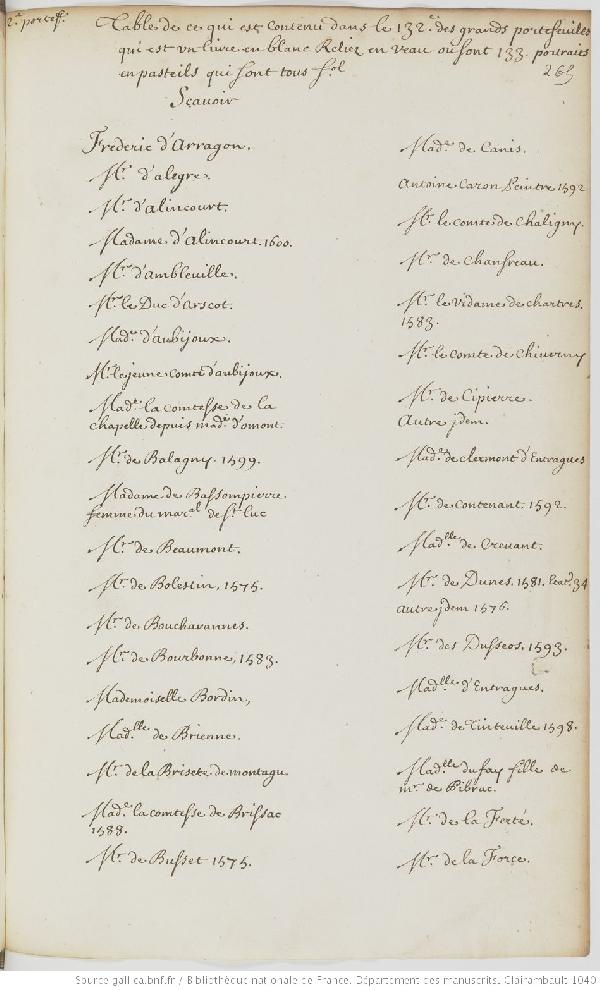 2.e portef.
Table de ce qui est contenu dans le 132.e des grands portefeuilles
qui est un livre en blanc Reliez en veau ou sont 133. portraits
en pasteils qui sont tous fol
265
Sçavoir
Frederic d'Arragon.
Mr. d'alegre.
Mr. d'alincourt.
Madame d'Alincourt. 1600.
Mr. d'ambleville.
Mr. le Duc d'arscot.
Made. d'aubijoux.
Mr. le jeune comte d'aubijoux.
Made. la comtesse de la
chapelle depuis made. d'omont.
Mr. de Balagny. 1599.
Madame de Bassompierre
femme du maral de st. Luc
Mr. de Beaumont.
Mr. de Bolestin, 1575.
Mr. de Bouchavannes.
Mr. de Bourbonne, 1583.
Mademoiselle Bordin,
Madlle. de Brienne.
Mr. de la Brisete de montagu
Made. la comtesse de Brissac
1588.
Mr. de Busset 1575.
Made. de Canis.
Antoine Caron Peintre 1592
Mr. le comte de Chaligny.
Mr. de Chanfreau.
Mr. le Vidame de chartres.
1583.
Mr. le comte de Chiverny
Mr. de Cipierre.
Autre jdem.
Made. de clermont d'Entragues
Mr. de Contenant. 1592.
Madlle. de Crevant.
Mr. de Dunes. 1581. 34
autre jdem 1576.
Mr. des Dusseos, 1593.
Madlle. d'Entragues.
Made. de Tinteville 1598.
Madlle. du fay fille de
mr. de Pibrac.
Mr. de la Ferté.
Mr. de la Force.
Source gallica.bnf.fr / Bibliothèque nationale de France. Département des manuscrits. Clairambault 1040